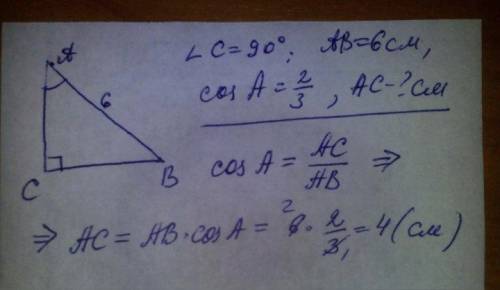 A
∠C=90°; AB=6см,
6
cos A = 2/3, AC-? см
C B
cos A = AC/AB ⇒
⇒ AC = AB·cos A = 6̸² · 2/3̸₁ = 4 (см)